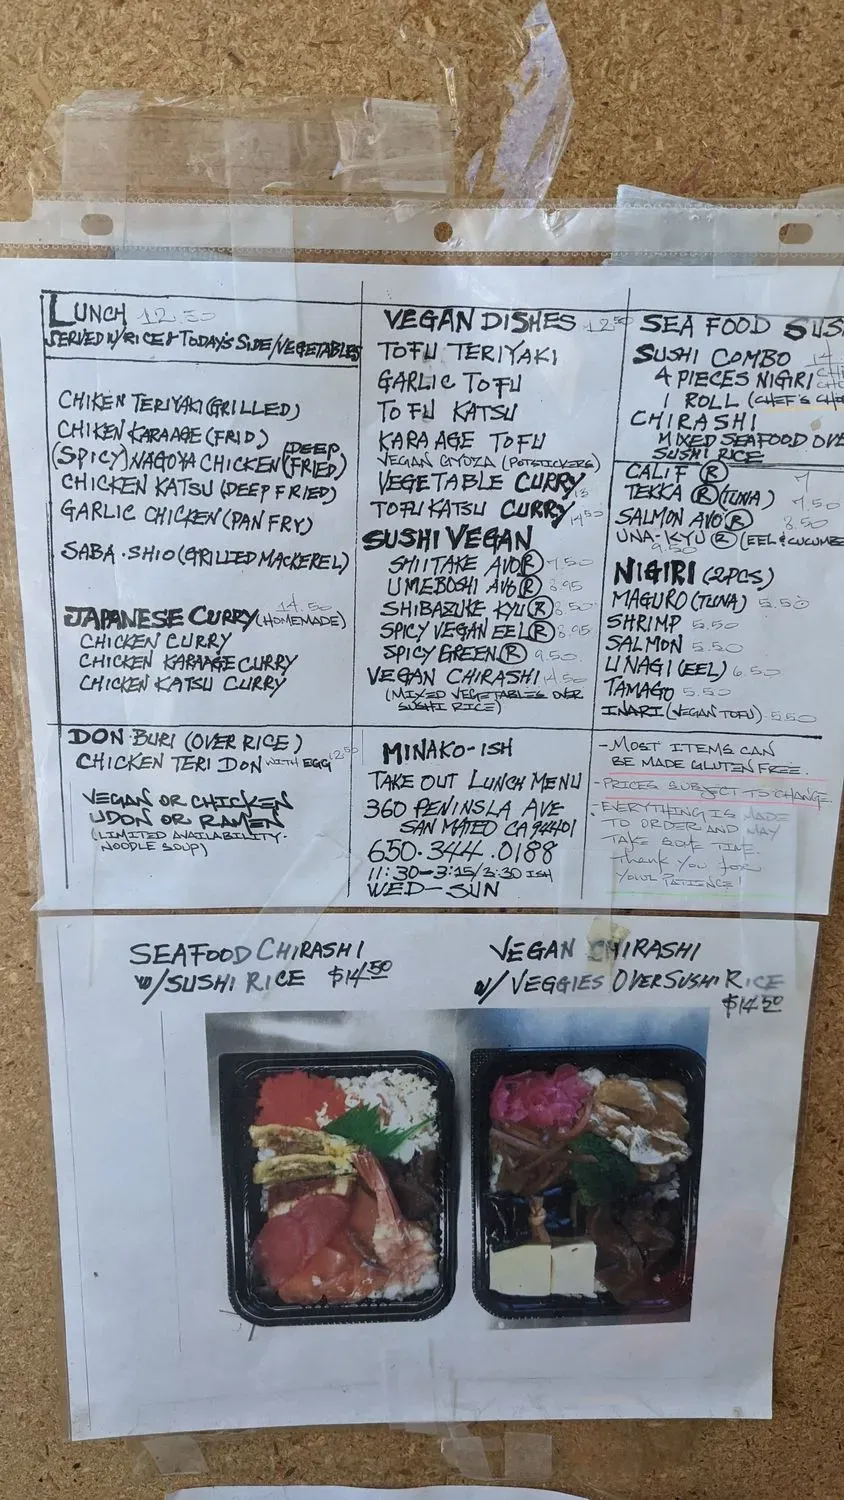 LUNCH 12.50
SERVED W/RICE & TODAY'S SIDE/VEGETABLES
CHIKEN TERIYAKI (GRILLED)
CHIKEN KARAAGE (FRID)
(SPICY) NAGOYA CHICKEN (DEEP FRIED)
CHICKEN KATSU (DEEP FRIED)
GARLIC CHICKEN (PAN FRY)
SABA-SHIO (GRILLED MACKEREL)
JAPANESE CURRY (HOMEMADE) 14.50
CHICKEN CURRY
CHICKEN KARAAGE CURRY
CHICKEN KATSU CURRY
DON-BURI (OVER RICE)
CHICKEN TERI DON WITH EGG 12.50
VEGAN OR CHICKEN
UDON OR RAMEN
(LIMITED AVAILABILITY-
NOODLE SOUP)
VEGAN DISHES 12.50
TOFU TERIYAKI
GARLIC TOFU
TOFU KATSU
KARAAGE TOFU
VEGAN GYOZA (POTSTICKERS)
VEGETABLE CURRY 13
TOFU KATSU CURRY 14.50
SUSHI VEGAN
SHIITAKE AVO Ⓡ 7.50
UMEBOSHI AVO Ⓡ 8.95
SHIBAZUKE KYU Ⓡ 8.50
SPICY VEGAN EEL Ⓡ 8.95
SPICY GREEN Ⓡ 9.50
VEGAN CHIRASHI 14.50
(MIXED VEGETABLES OVER
SUSHI RICE)
MINAKO-ISH
TAKE OUT LUNCH MENU
360 PENINSLA AVE
SAN MATEO CA 94401
650.344.0188
11:30-3:15/3:30 ISH
WED-SUN
SEA FOOD
SUSHI COMBO 14
4 PIECES NIGIRI
1 ROLL (CHEF'S
CHIRASHI
MIXED SEAFOOD
SUSHI RICE
CALIF Ⓡ 7
TEKKA Ⓡ (TUNA) 7.50
SALMON AVO Ⓡ 8.50
UNA-KYU Ⓡ (EEL & CUCUMBE
9.50
NIGIRI (2PCS)
MAGURO (TUNA) 5.50
SHRIMP 5.50
SALMON 5.50
UNAGI (EEL) 6.50
TAMAGO 5.50
INARI (VEGAN TOFU) 5.50
- MOST ITEMS CAN
BE MADE GLUTEN FREE.
- PRICES SUBJECT TO CHANGE
- EVERYTHING IS MADE
TO ORDER AND MAY
TAKE SOME TIME.
Thank You for
YOUR PATIENCE!
SEAFOOD CHIRASHI
W/SUSHI RICE $14.50
VEGAN CHIRASHI
W/VEGGIES OVER SUSHI RICE
$14.50